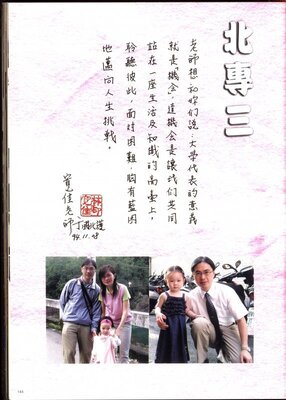 北專三
老師想和妳們說,大學代表的意義
就是「機會」,這機會是讓我们共同
站在一座生活及知識的高臺上,
聆聽彼此,面对困難,胸有藍图
地邁向人生挑戰。
老師
94.11.28